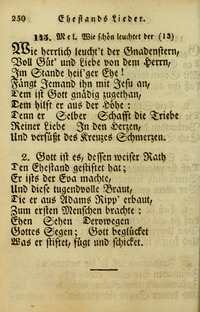 250 Ehestands Lieder.
145. Mel. Wie schön leuchtet der (13)
Wie herrlich leucht't der Gnadenstern,
Voll Güt' und Liebe von dem Herrn,
Im Stande heil'ger Ehe!
Fängt Jemand ihn mit Jesu an,
Dem ist Gott gnädig zugethan,
Dem hilft er aus der Höhe:
Denn er Selber Schafft die Triebe
Reiner Liebe In den Herzen,
Und versüßt des Kreuzes Schmerzen.
2. Gott ist es, dessen weiser Rath
Den Ehestand gestiftet hat;
Er ists der Eva machte,
Und diese tugendvolle Braut,
Die er aus Adams Ripp' erbaut,
Zum ersten Menschen brachte:
Ehen Sehen Derowegen
Gottes Segen; Gott beglücket
Was er stiftet, fügt und schicket.